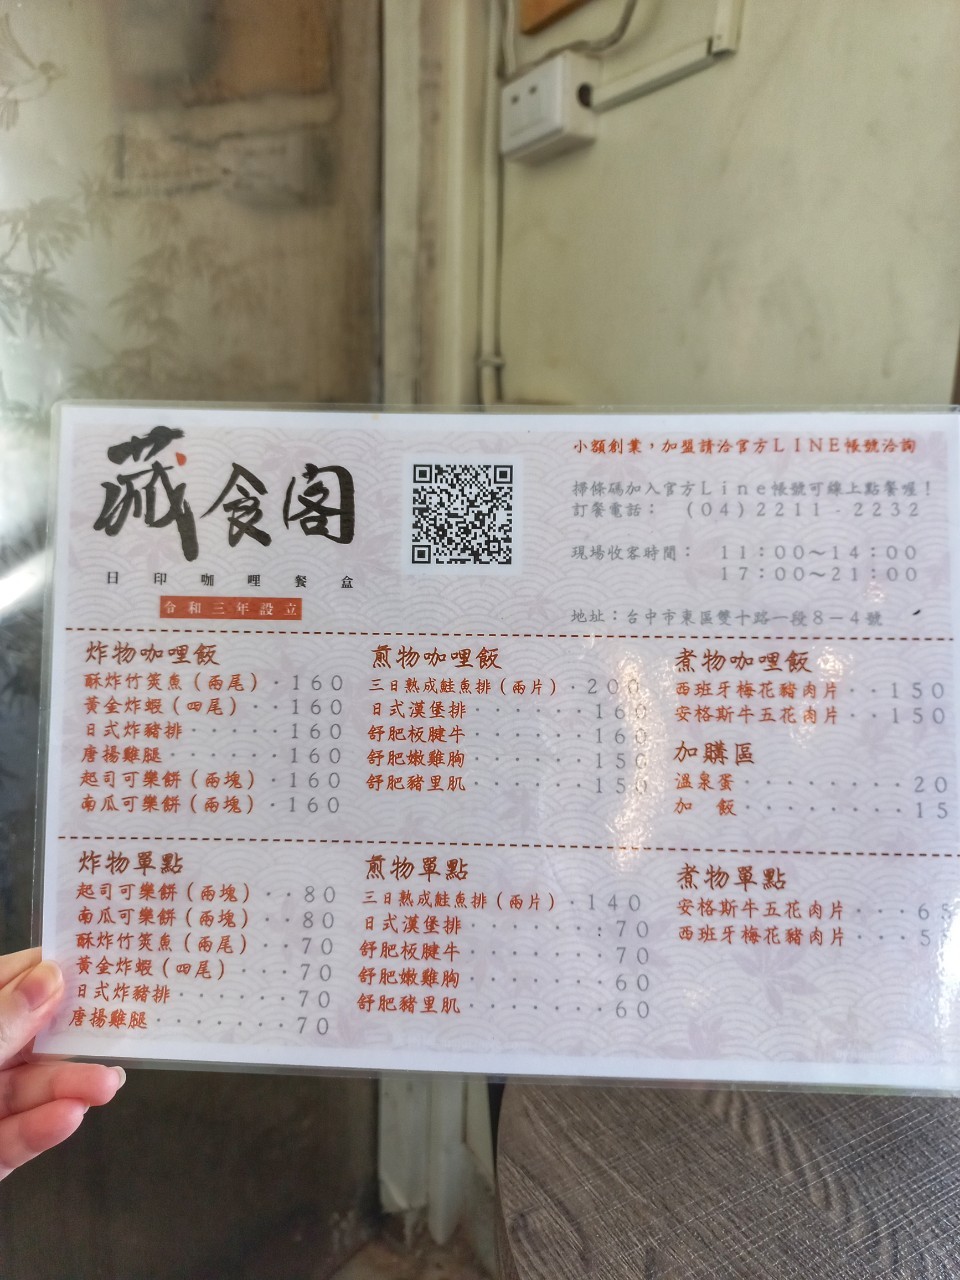 藏食客
日印咖哩餐盒
令和三年設立
小額創業，加盟請洽官方ＬＩＮＥ帳號洽詢
掃條碼加入官方Ｌｉｎｅ帳號可線上點餐喔！
訂餐電話： （04）2211-2232
現場收客時間： 11：00～14：00
17：00～21：00
地址：台中市東區雙十路一段8－4號
炸物咖哩飯
酥炸竹筴魚（兩尾）‧160
黃金炸蝦（四尾）‧‧160
日式炸豬排‧‧‧‧‧160
唐揚雞腿‧‧‧‧‧‧160
起司可樂餅（兩塊）‧160
南瓜可樂餅（兩塊）‧160
煎物咖哩飯
三日熟成鮭魚排（兩片）‧200
日式漢堡排‧‧‧‧‧‧160
舒肥板腱牛‧‧‧‧‧‧160
舒肥嫩雞胸‧‧‧‧‧‧150
舒肥豬里肌‧‧‧‧‧‧150
煮物咖哩飯
西班牙梅花豬肉片‧‧150
安格斯牛五花肉片‧‧150
加購區
溫泉蛋‧‧‧‧‧‧‧‧20
加 飯‧‧‧‧‧‧‧‧15
炸物單點
起司可樂餅（兩塊）‧‧80
南瓜可樂餅（兩塊）‧‧80
酥炸竹筴魚（兩尾）‧‧70
黃金炸蝦（四尾）‧‧‧70
日式炸豬排‧‧‧‧‧‧70
唐揚雞腿‧‧‧‧‧‧‧70
煎物單點
三日熟成鮭魚排（兩片）‧140
日式漢堡排‧‧‧‧‧‧：70
舒肥板腱牛‧‧‧‧‧‧‧70
舒肥嫩雞胸‧‧‧‧‧‧‧60
舒肥豬里肌‧‧‧‧‧‧‧60
煮物單點
安格斯牛五花肉片‧‧‧65
西班牙梅花豬肉片‧‧‧5